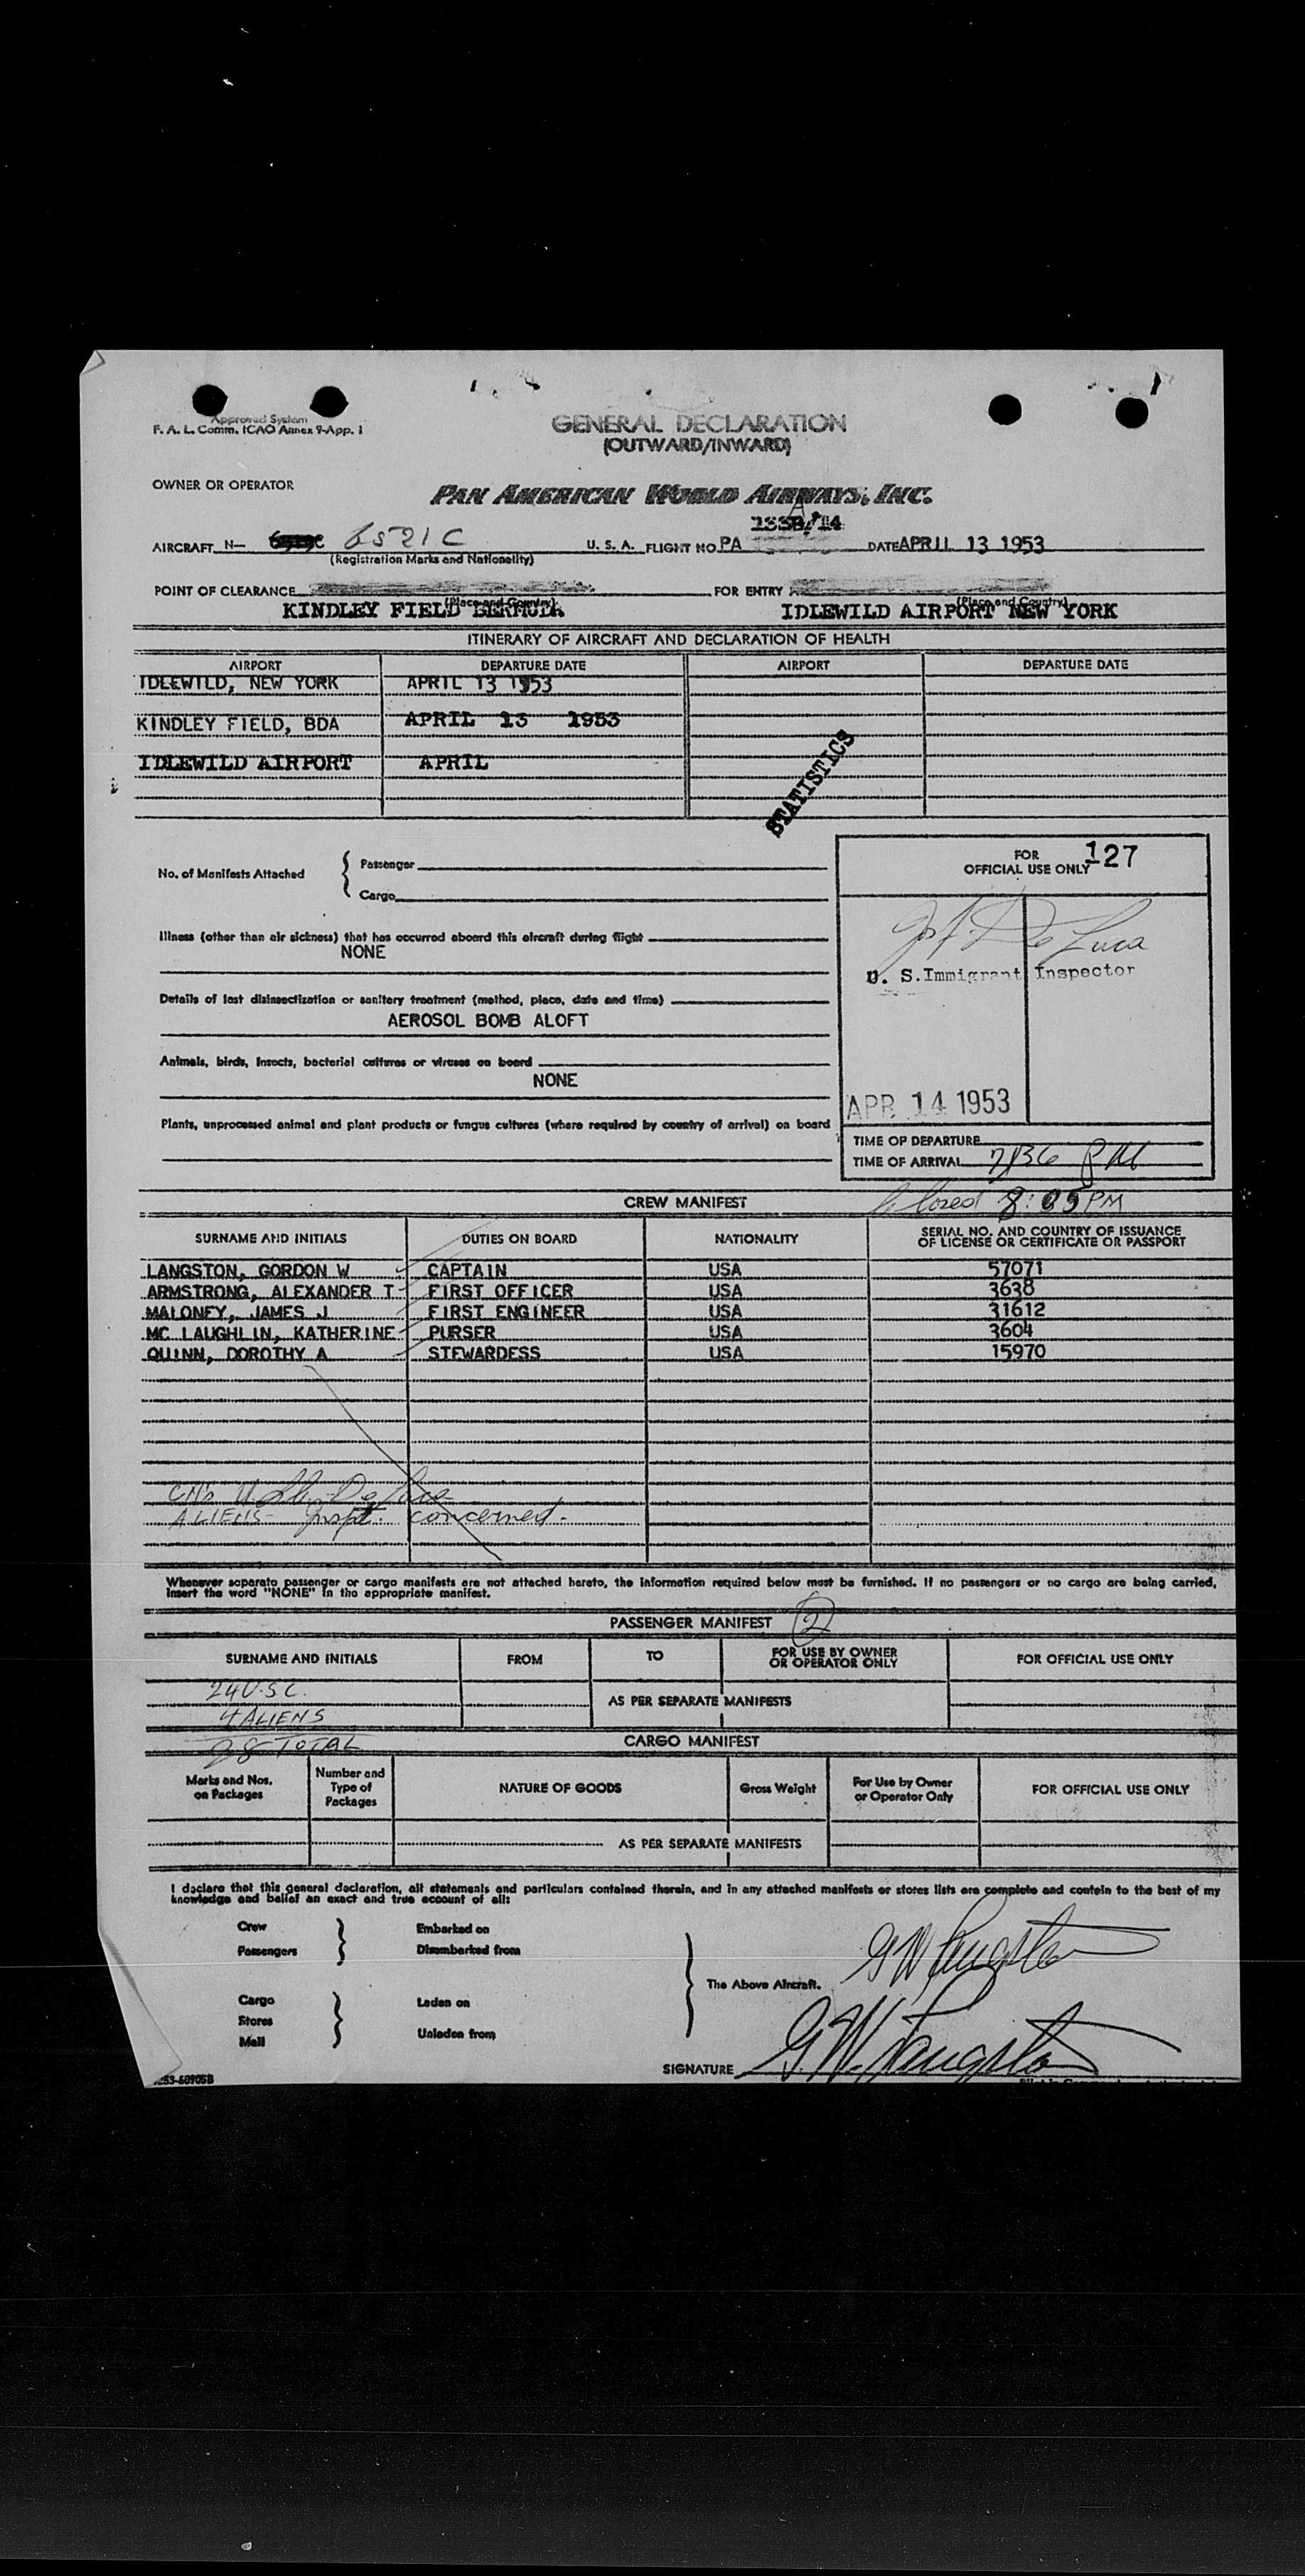 Approved System
F. A. L. Comm. ICAO Annex 9-App. 1
GENERAL DECLARATION
(OUTWARD/INWARD)
OWNER OR OPERATOR
PAN AMERICAN WORLD AIRWAYS, INC.
AIRCRAFT N- 6521C U. S. A. FLIGHT NO. PA DATE APRIL 13 1953
(Registration Marks and Nationality)
POINT OF CLEARANCE FOR ENTRY
(Place and Country) (Place and Country)
KINDLEY FIELD BERMUDA IDLEWILD AIRPORT NEW YORK
ITINERARY OF AIRCRAFT AND DECLARATION OF HEALTH
AIRPORT DEPARTURE DATE AIRPORT DEPARTURE DATE
IDLEWILD, NEW YORK APRIL 13 1953
KINDLEY FIELD, BDA APRIL 13 1953
IDLEWILD AIRPORT APRIL
STATISTICS
FOR 127
OFFICIAL USE ONLY
No. of Manifests Attached { Passenger
Cargo
Jos. F. De Luca
U. S. Immigrant Inspector
Illness (other than air sickness) that has occurred aboard this aircraft during flight
NONE
Details of last disinsectization or sanitary treatment (method, place, date and time)
AEROSOL BOMB ALOFT
Animals, birds, insects, bacterial cultures or viruses on board
NONE
APR 14 1953
Plants, unprocessed animal and plant products or fungus cultures (where required by country of arrival) on board
TIME OF DEPARTURE
TIME OF ARRIVAL 7:36 PM
CREW MANIFEST closed 8:05 PM
SURNAME AND INITIALS DUTIES ON BOARD NATIONALITY SERIAL NO. AND COUNTRY OF ISSUANCE
OF LICENSE OR CERTIFICATE OR PASSPORT
LANGSTON, GORDON W CAPTAIN USA 57071
ARMSTRONG, ALEXANDER T FIRST OFFICER USA 3638
MALONEY, JAMES J FIRST ENGINEER USA 31612
MC LAUGHLIN, KATHERINE PURSER USA 3604
QUINN, DOROTHY A STEWARDESS USA 15970
De Luca
ALIENS- Inspt. concerned.
Whenever separate passenger or cargo manifests are not attached hereto, the information required below must be furnished. If no passengers or no cargo are being carried,
insert the word "NONE" in the appropriate manifest.
PASSENGER MANIFEST 2
SURNAME AND INITIALS FROM TO FOR USE BY OWNER
OR OPERATOR ONLY FOR OFFICIAL USE ONLY
24 U.S.C.
AS PER SEPARATE MANIFESTS
4 ALIENS
28 TOTAL
CARGO MANIFEST
Marks and Nos.
on Packages Number and
Type of
Packages NATURE OF GOODS Gross Weight For Use by Owner
or Operator Only FOR OFFICIAL USE ONLY
AS PER SEPARATE MANIFESTS
I declare that this general declaration, all statements and particulars contained therein, and in any attached manifests or stores lists are complete and contain to the best of my
knowledge and belief an exact and true account of all:
Crew Embarked on
Passengers Disembarked from
The Above Aircraft. G W Langston
Cargo Laden on
Stores
Mail Unladen from
SIGNATURE G.W. Langston